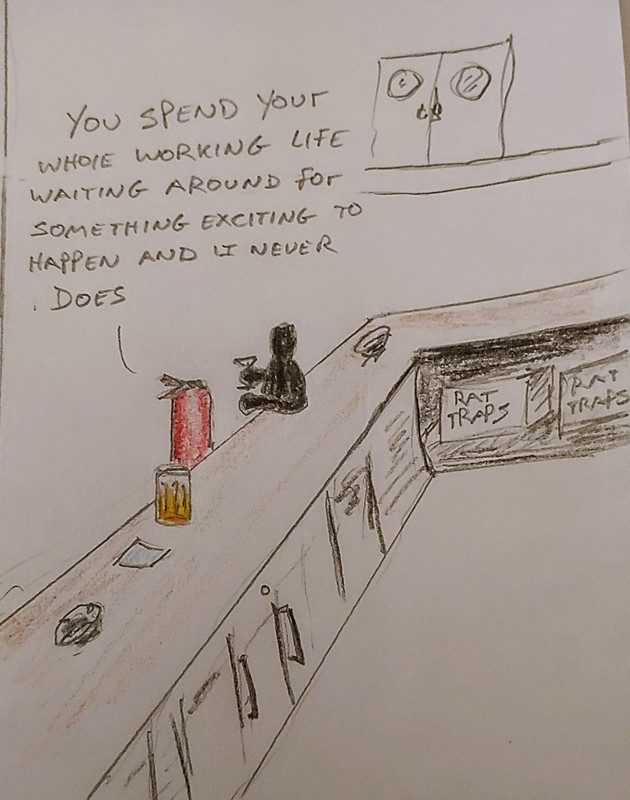 YOU SPEND YOUR
WHOLE WORKING LIFE
WAITING AROUND FOR
SOMETHING EXCITING TO
HAPPEN AND IT NEVER
DOES
RAT
TRAPS
RAT
TRAPS